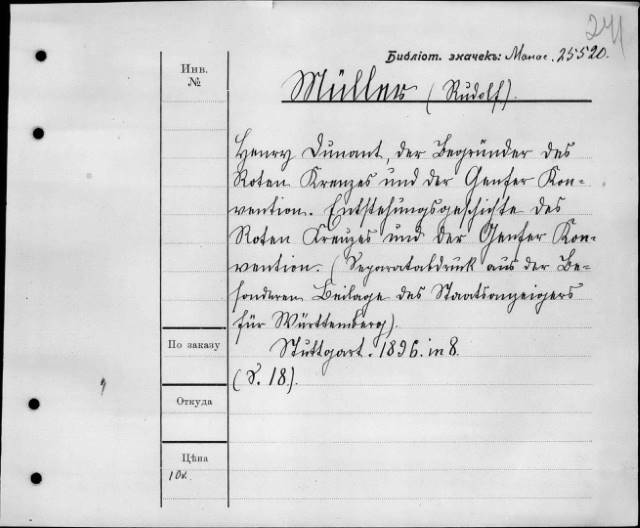 241
Библіот. значекъ: Манас. 25520.
Инв.
№
Müller (Rudolf).
Henry Dunant, der Begründer des
Roten Kreuzes und der Genfer Kon-
vention. Entstehungsgeschichte des
Roten Kreuzes und der Genfer Kon-
vention. (Separatabdruck aus der Be-
sonderen Beilage des Staatsanzeigers
für Württemberg).
Stuttgart. 1896. in 8.
(S. 18).
По заказу
Откуда
Цѣна
10к.